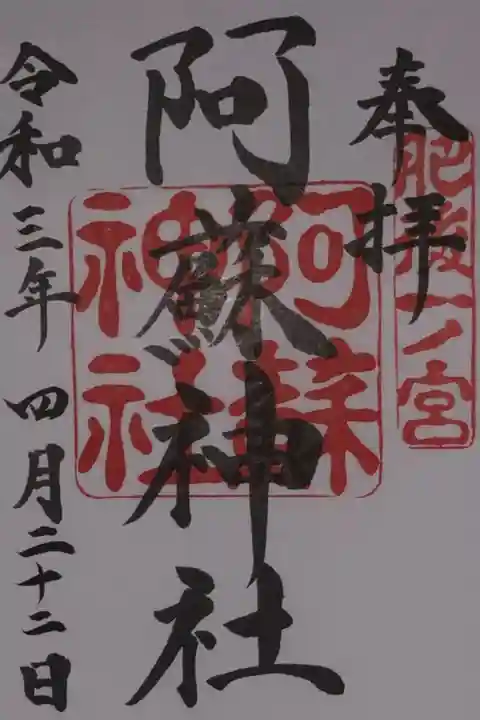 奉拝
肥後一ノ宮
阿蘇神社
阿蘇
神社
令和三年 四月二十二日